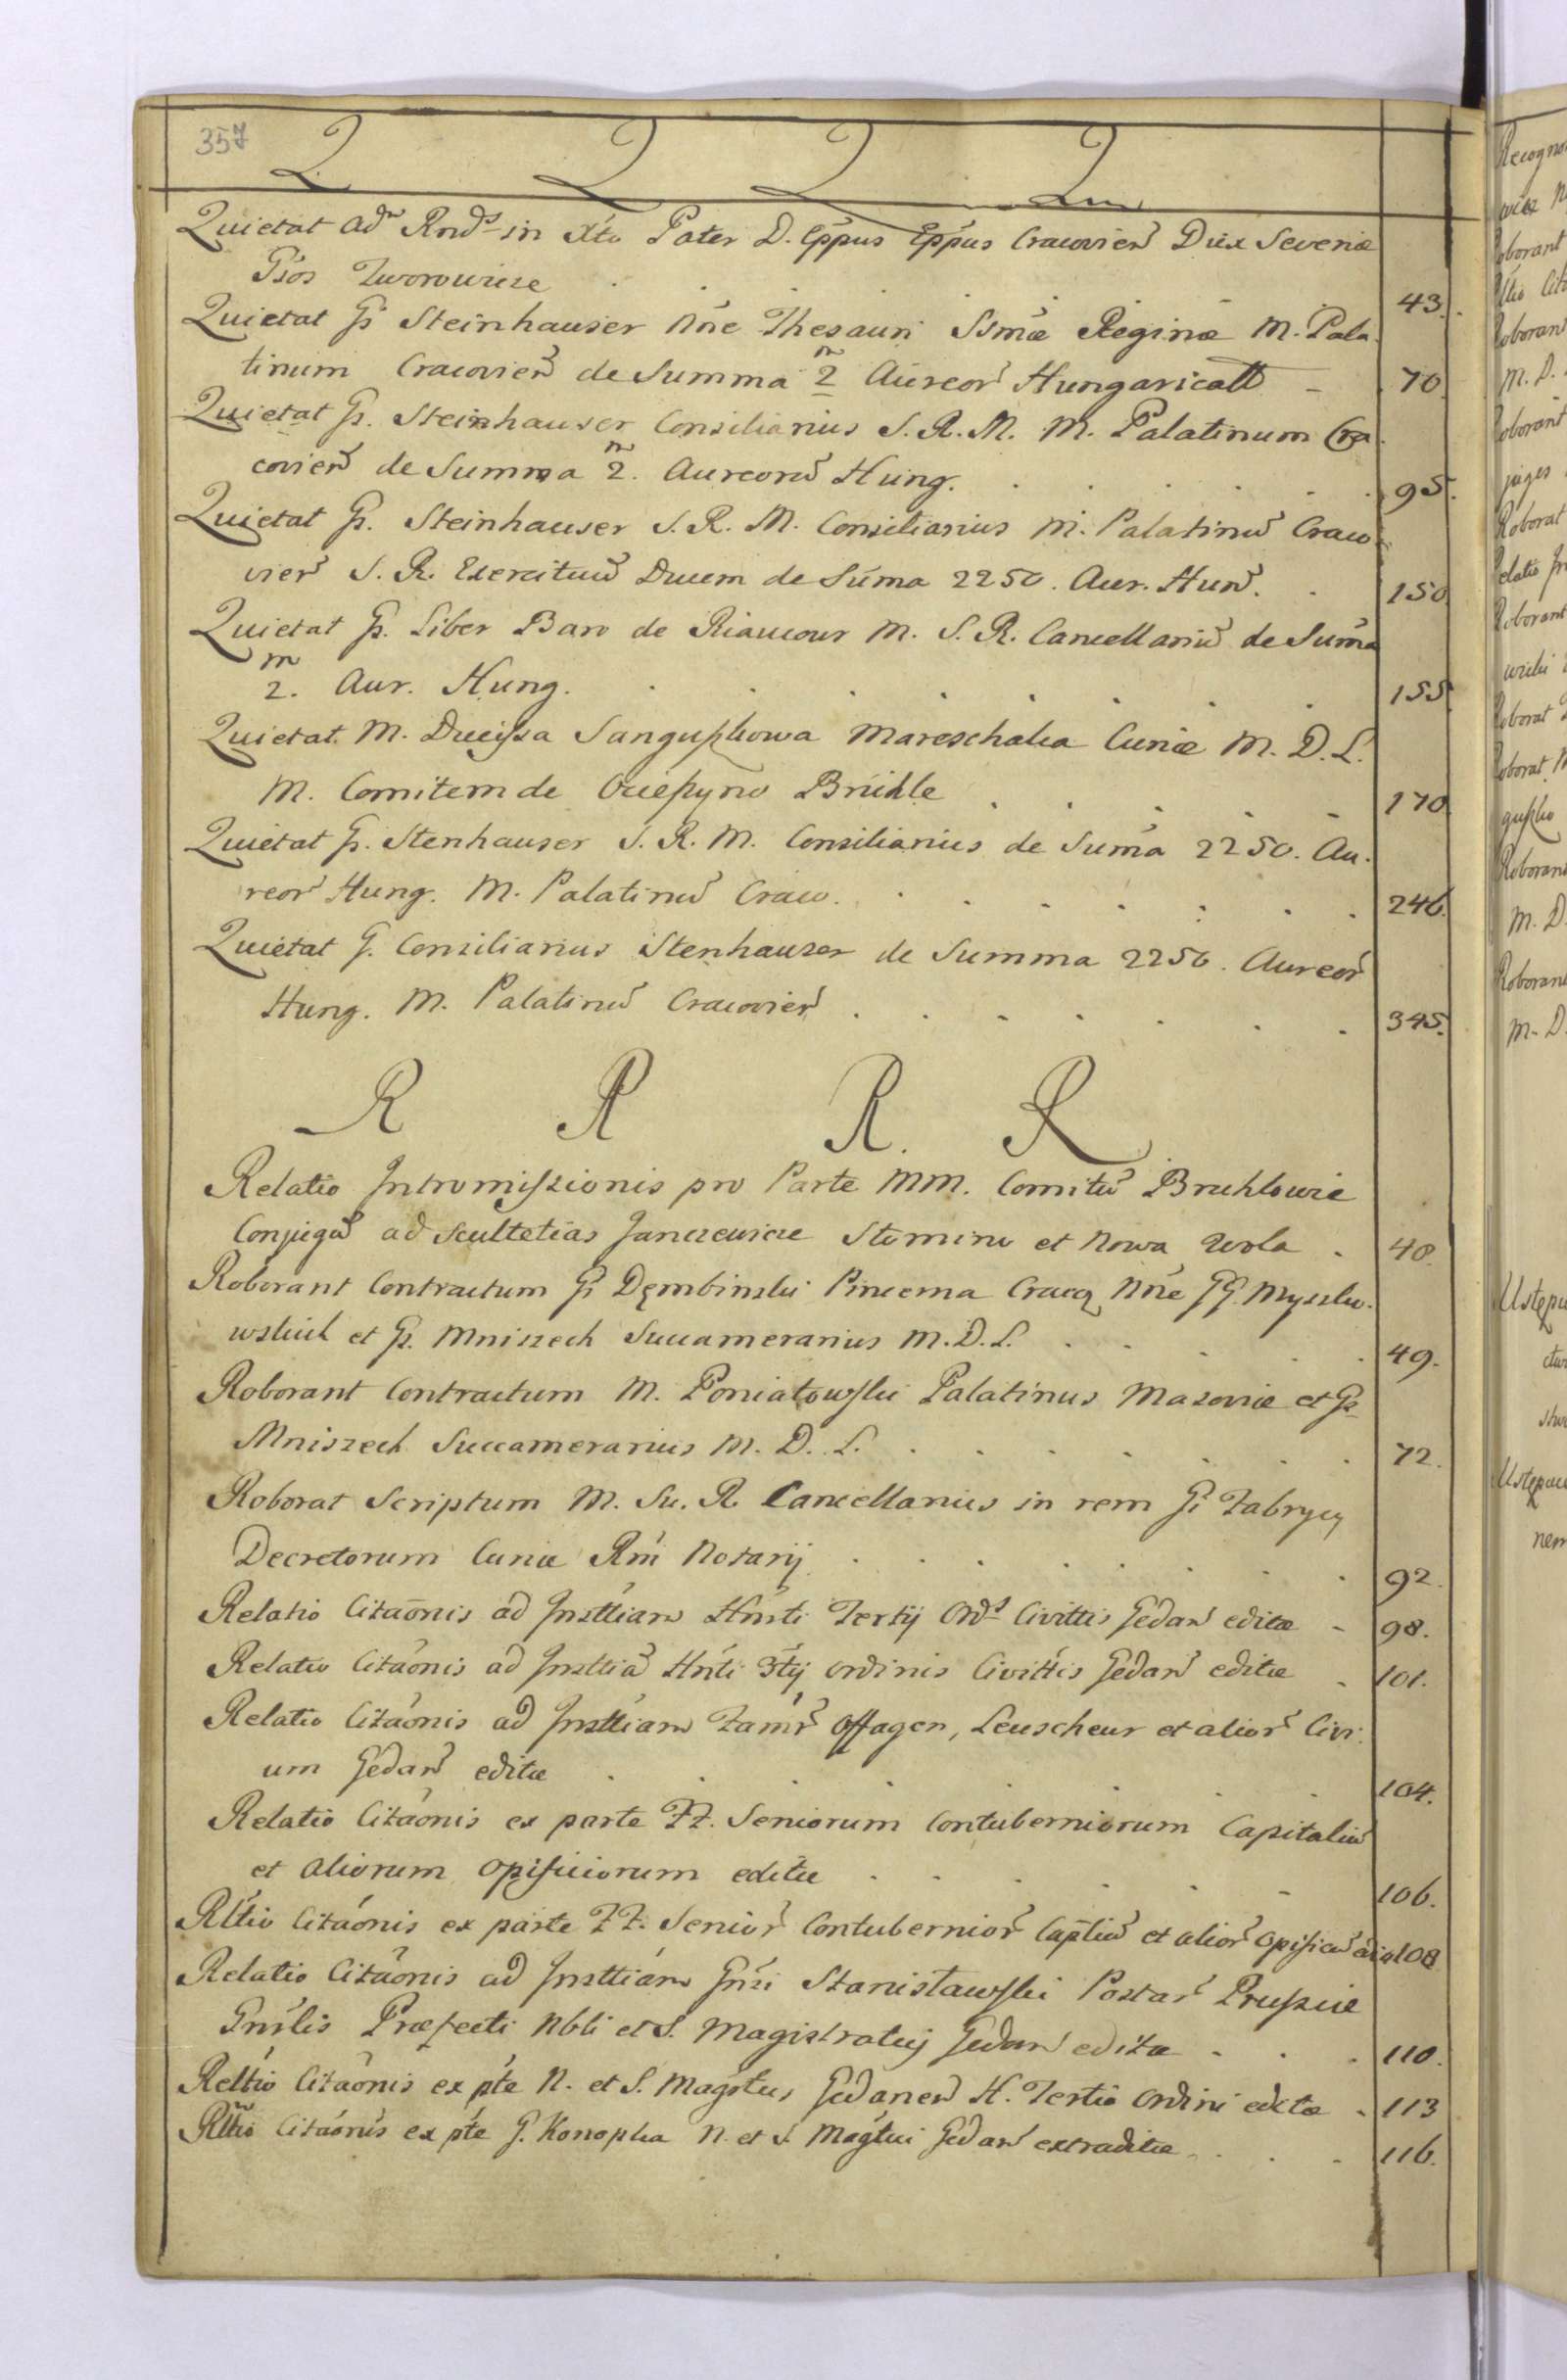 357
Q Q Q Q
Quietat Adm Rnds in Xto Pater D. Eppus Eppus Cracovien Dux Severiæ
Gsos Zworowicze 43.
Quietat Gs Steinhauser Nne Thesauri Ssmæ Reginæ M. Pala
tinum Cracovien de Summa 2 m Aureor Hungaricall 70
Quietat Gs. Steinhauser Consiliarius S. R. M. M. Palatinum Cra
covien de Summa 2 m. Aureoru Hung. 95.
Quietat Gs. Steinhauser S. R. M. Consiliarius M. Palatinu Craco
vien S. R. Exercituu Ducem de Suma 2250. Aur. Hun. 150
Quietat Gs. Liber Baro de Riaucour M. S. R. Cancellariu de Suma
2 m. Aur. Hung. 155
Quietat M. Ducissa Sanguszkowa Mareschalca Curiæ M. D. L.
M. Comitem de Ocieszyno Brühle 170
Quietat Gs. Stenhauser S. R. M. Consiliarius de Suma 2250. Au.
reor Hung. M. Palatinu Craco. 246.
Quietat G. Consiliarius Stenhauser de Summa 2250. Aureor
Hung. M. Palatinu Cracovien 345.
R R R. R
Relatio Intromissionis pro Parte MM. Comitu Bruhlowie
Conjugu ad Scultetias Janczewicze Stomino et Nowa Wola 40.
Roborant Contractum Gs Dęmbinski Pincerna Cracq Nne GG. Myszko.
wskich et Gs. Mniszech Succamerarius M. D. L. 49.
Roborant Contractum M. Poniatowski Palatinus Masoviæ et Gs
Mniszech Succamerarius M. D. L. 72.
Roborat Scriptum M. Su. R. Cancellarius in rem Gi Zabrycy
Decretorum Curiæ Rni Notarij 92.
Relatio Citaonis ad Insttiam Hnsti Tertij Ords Civittis Gedan editæ 98.
Relatio Citaonis ad Insttia Hnti 3tij Ordinis Civittis Gedan editæ 101.
Relatio Citaonis ad Insttiam Famr Offagen, Leuscheur et alior Civi.
um Gedan editæ 104.
Relatio Citaonis ex parte FF. Seniorum Contuberniorum Capitaliu
et aliorum Opificiorum editæ 106.
Rltio Citaonis ex parte FF. Senior Contubernior Captliu et alior Opificu 108
Relatio Citaonis ad Insttiam Gnsi Stanisławski Postar Prussiæ
Gnrlis Præfecti Nbli et S. Magistratuij Gedan editæ 110.
Reltio Citaonis ex pte N. et S. Magstus Gedanen H. Tertio Ordini editæ 113
Rltio Citaonis ex pte G. Konopka N. et S. Magtui Gedan extraditæ 116.